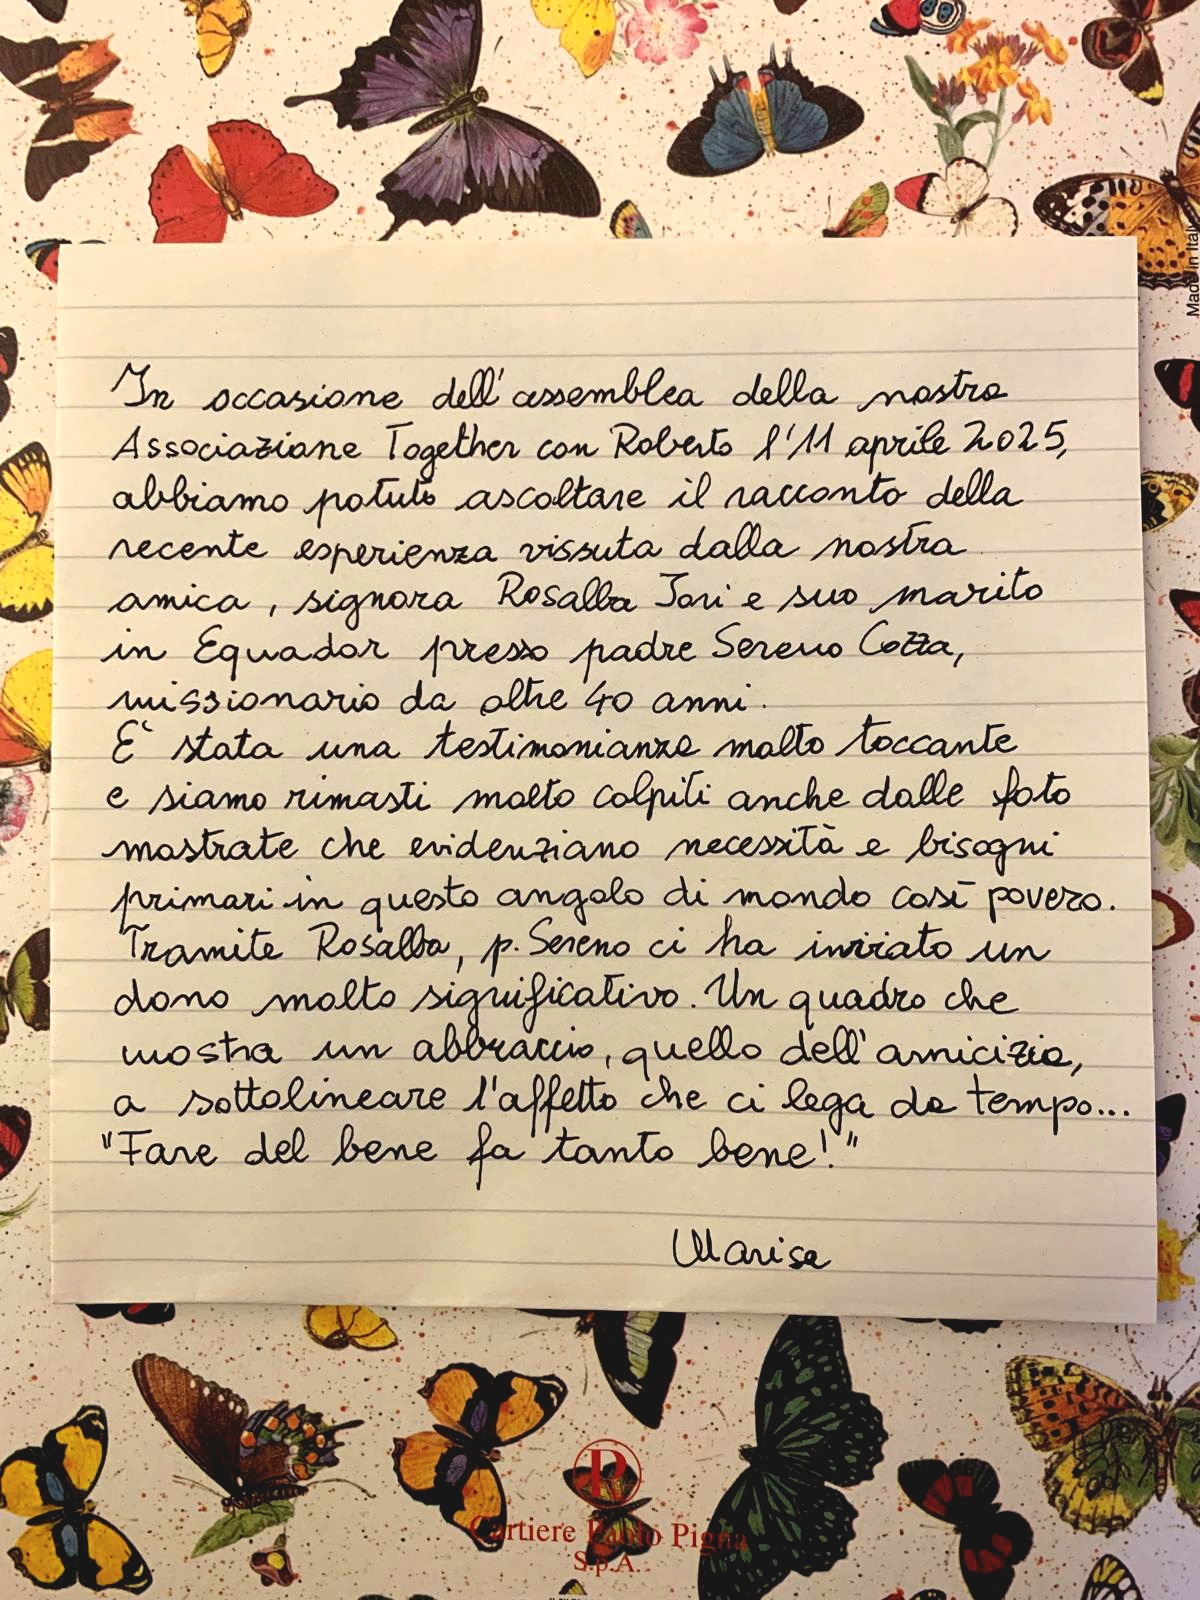 Made in Italy
In occasione dell'assemblea della nostra
Associazione Together con Roberto l'11 aprile 2025,
abbiamo potuto ascoltare il racconto della
recente esperienza vissuta dalla nostra
amica, signora Rosalba Jori e suo marito
in Equador presso padre Sereno Cozza,
missionario da oltre 40 anni.
E' stata una testimonianza molto toccante
e siamo rimasti molto colpiti anche dalle foto
mostrate che evidenziano necessità e bisogni
primari in questo angolo di mondo così povero.
Tramite Rosalba, p. Sereno ci ha inviato un
dono molto significativo. Un quadro che
mostra un abbraccio, quello dell'amicizia,
a sottolineare l'affetto che ci lega da tempo...
"Fare del bene fa tanto bene!"
Marisa
P
Cartiere Paolo Pigna
S.p.A.